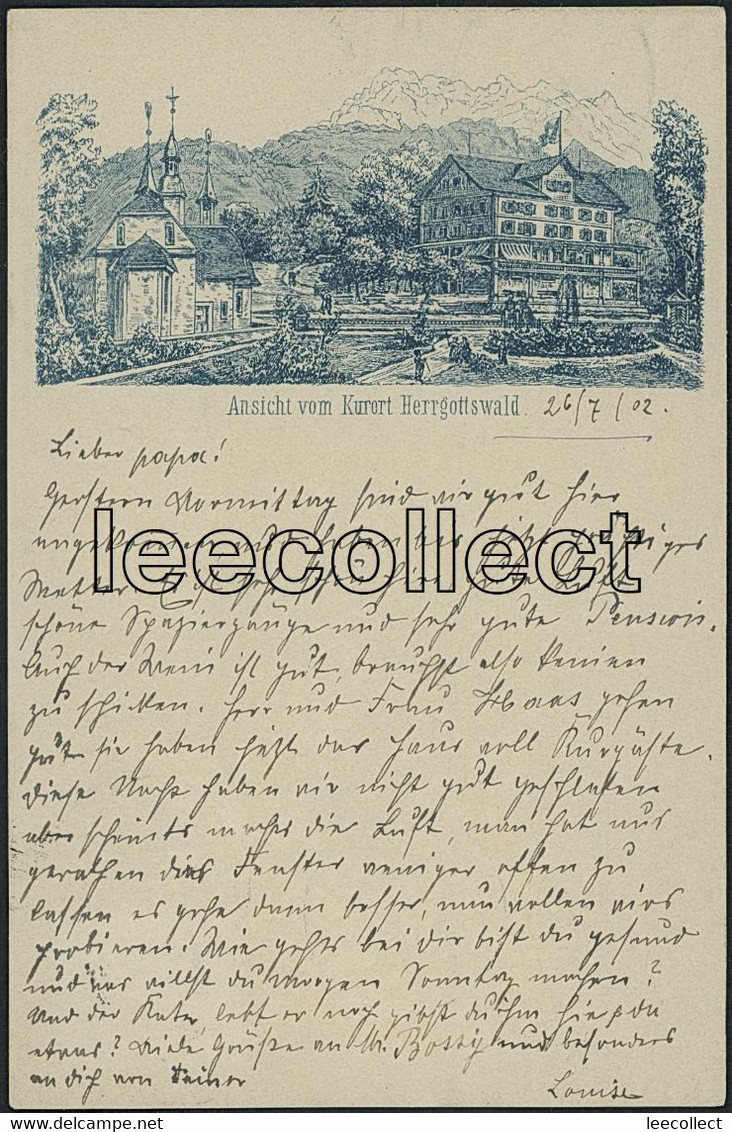 Ansicht vom Kurort Herrgottswald. 26/7/02.
Lieber papa!
Gestern Vormittag sind wir gut hier
angekommen und haben bis jetzt
Wetter. Es ist sehr schön hier, gute Luft
leecollect
schöne Spaziergänge und sehr gute Pension.
Auch der Wein ist gut, brauchst also keinen
zu schicken. Herr und Frau Haas gehen
gut sie haben jetzt das Haus voll Kurgäste.
diese Nacht haben wir nicht gut geschlafen
aber scheints machts die Luft, man hat uns
gerathen die Fenster weniger offen zu
lassen es gehe dann besser, nun wollen wirs
probieren. Wie gehts bei dir bist du gesund
und was willst du morgen Sonntag machen?
Und der Kater lebt er noch gibst du ihm hie & da
etwas? Viele Grüsse an Bossy und besonders
an dich von Deiner
Louise
leecollect leecollect